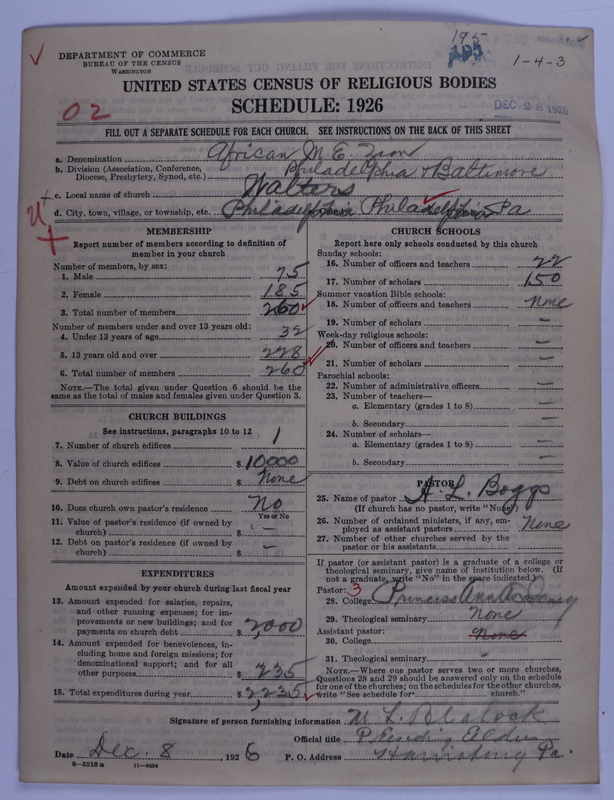 195
APR
1-4-3
DEPARTMENT OF COMMERCE
BUREAU OF THE CENSUS
WASHINGTON
UNITED STATES CENSUS OF RELIGIOUS BODIES
SCHEDULE: 1926
02
DEC 28 1926
FILL OUT A SEPARATE SCHEDULE FOR EACH CHURCH. SEE INSTRUCTIONS ON THE BACK OF THIS SHEET
a. Denomination African M. E. Zion
b. Division (Association, Conference, Philadelphia & Baltimore
Diocese, Presbytery, Synod, etc.)
c. Local name of church Walters
d. City, town, village, or township, etc. Philadelphia Pa
MEMBERSHIP
Report number of members according to definition of
member in your church
Number of members, by sex:
1. Male 75
2. Female 185
3. Total number of members 260
Number of members under and over 13 years old:
4. Under 13 years of age 32
5. 13 years old and over 228
6. Total number of members 260
NOTE.—The total given under Question 6 should be
the same as the total of males and females given under Question 3.
CHURCH BUILDINGS
See instructions, paragraphs 10 to 12
7. Number of church edifices 1
8. Value of church edifices $10,000
9. Debt on church edifices $ None
10. Does church own pastor's residence No
Yes or No
11. Value of pastor's residence (if owned by
church) $ —
12. Debt on pastor's residence (if owned by
church) $ —
EXPENDITURES
Amount expended by your church during last fiscal year
13. Amount expended for salaries, repairs,
and other running expenses; for im-
provements or new buildings; and for
payments on church debt $2,000
14. Amount expended for benevolences, in-
cluding home and foreign missions; for
denominational support; and for all
other purposes $235
15. Total expenditures during year $2,235
CHURCH SCHOOLS
Report here only schools conducted by this church
Sunday schools:
16. Number of officers and teachers 22
17. Number of scholars 150
Summer vacation Bible schools:
18. Number of officers and teachers None
19. Number of scholars —
Week-day religious schools:
20. Number of officers and teachers —
21. Number of scholars —
Parochial schools:
22. Number of administrative officers —
23. Number of teachers—
a. Elementary (grades 1 to 8) —
b. Secondary —
24. Number of scholars—
a. Elementary (grades 1 to 8) —
b. Secondary —
PASTOR
25. Name of pastor H. L. Boggs
(If church has no pastor, write "None")
26. Number of ordained ministers, if any, em-
ployed as assistant pastors None
27. Number of other churches served by the
pastor or his assistants
If pastor (or assistant pastor) is a graduate of a college or
theological seminary, give name of institution below. (If
not a graduate, write "No" in the space indicated.)
Pastor: 3
28. College Princess Ann Academy
29. Theological seminary None
Assistant pastor: None
30. College
31. Theological seminary —
NOTE.—Where one pastor serves two or more churches,
Questions 28 and 29 should be answered only on the schedule
for one of the churches; on the schedules for the other churches,
write "See schedule for church."
Signature of person furnishing information M. L. Blalock
Official title Presiding Elder
Date Dec. 8, 1926 P. O. Address Harrisburg Pa.
8-5518 a 11-9084